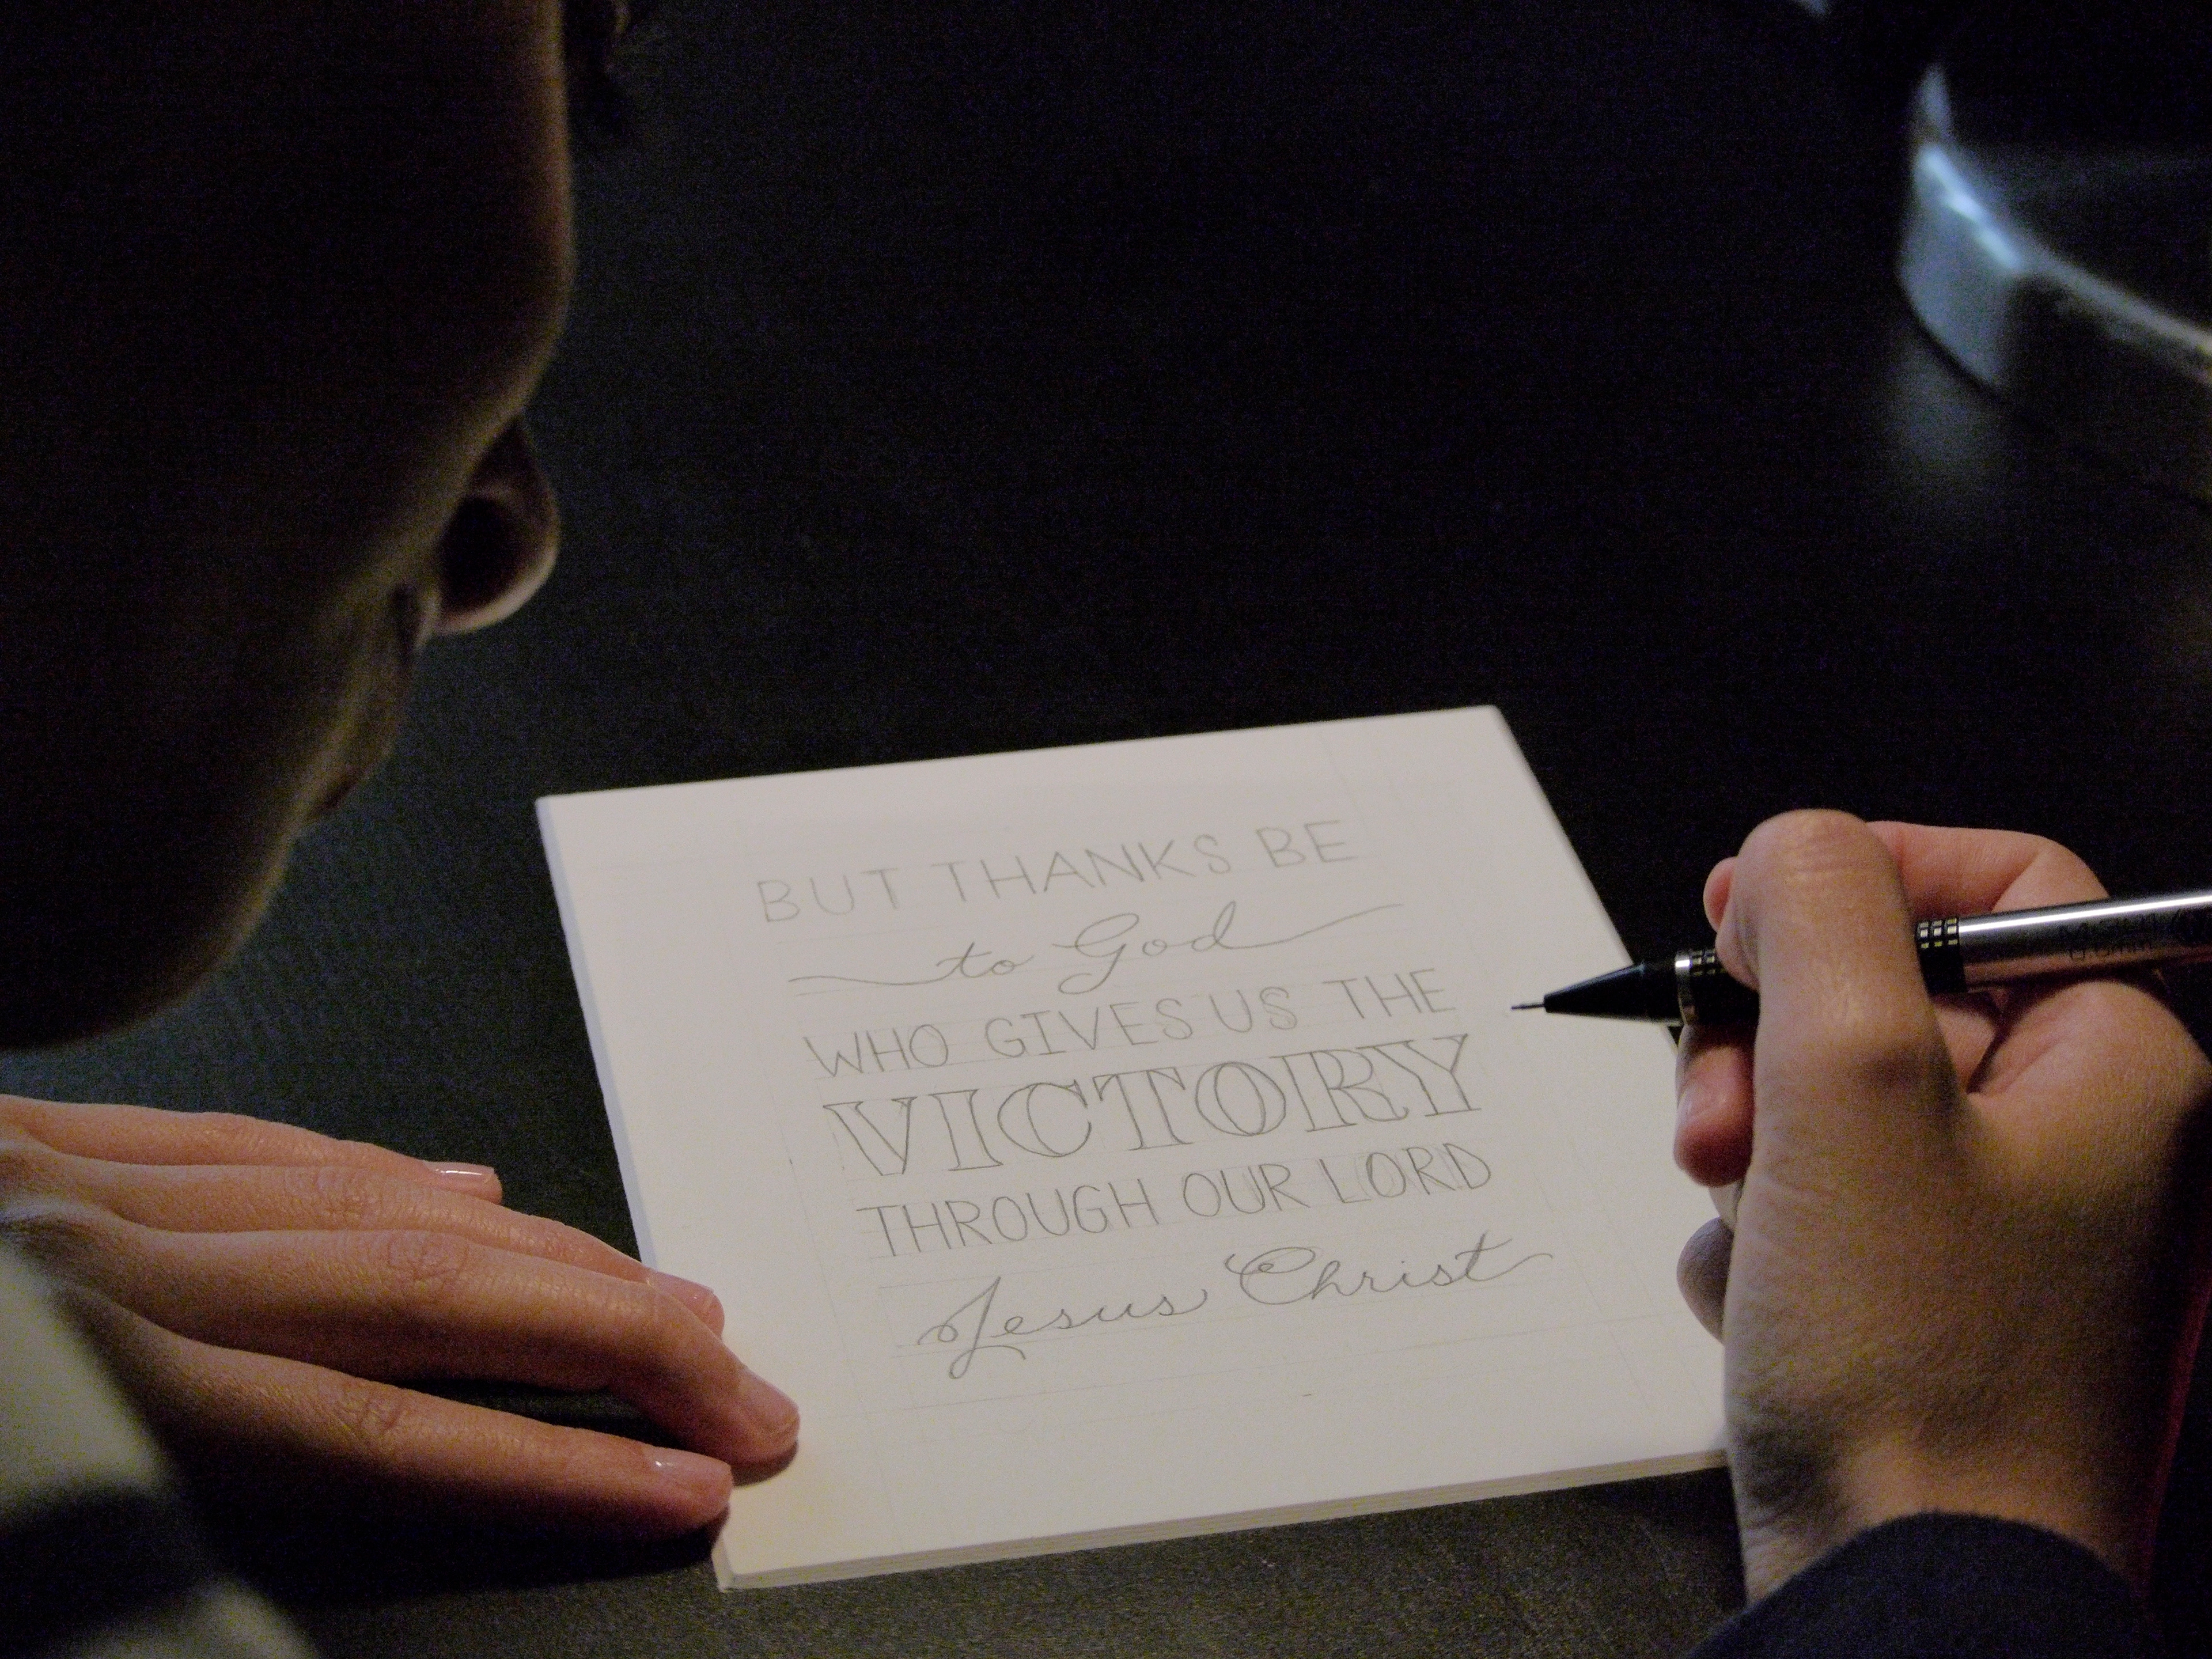 BUT THANKS BE
to God
WHO GIVES US THE
VICTORY
THROUGH OUR LORD
Jesus Christ